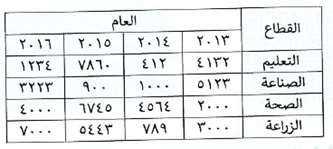 القطاع العام
٢٠١٣ ٢٠١٤ ٢٠١٥ ٢٠١٦
التعليم ٤١٣٢ ٤١٢ ٧٨٦٠ ١٢٣٤
الصناعة ٥١٢٣ ١٠٠٠ ٩٠٠ ٣٢٢٣
الصحة ٢٠٠٠ ٤٥٦٤ ٦٧٤٥ ٤٠٠٠
الزراعة ٣٠٠٠ ٧٨٩ ٥٤٤٣ ٧٠٠٠